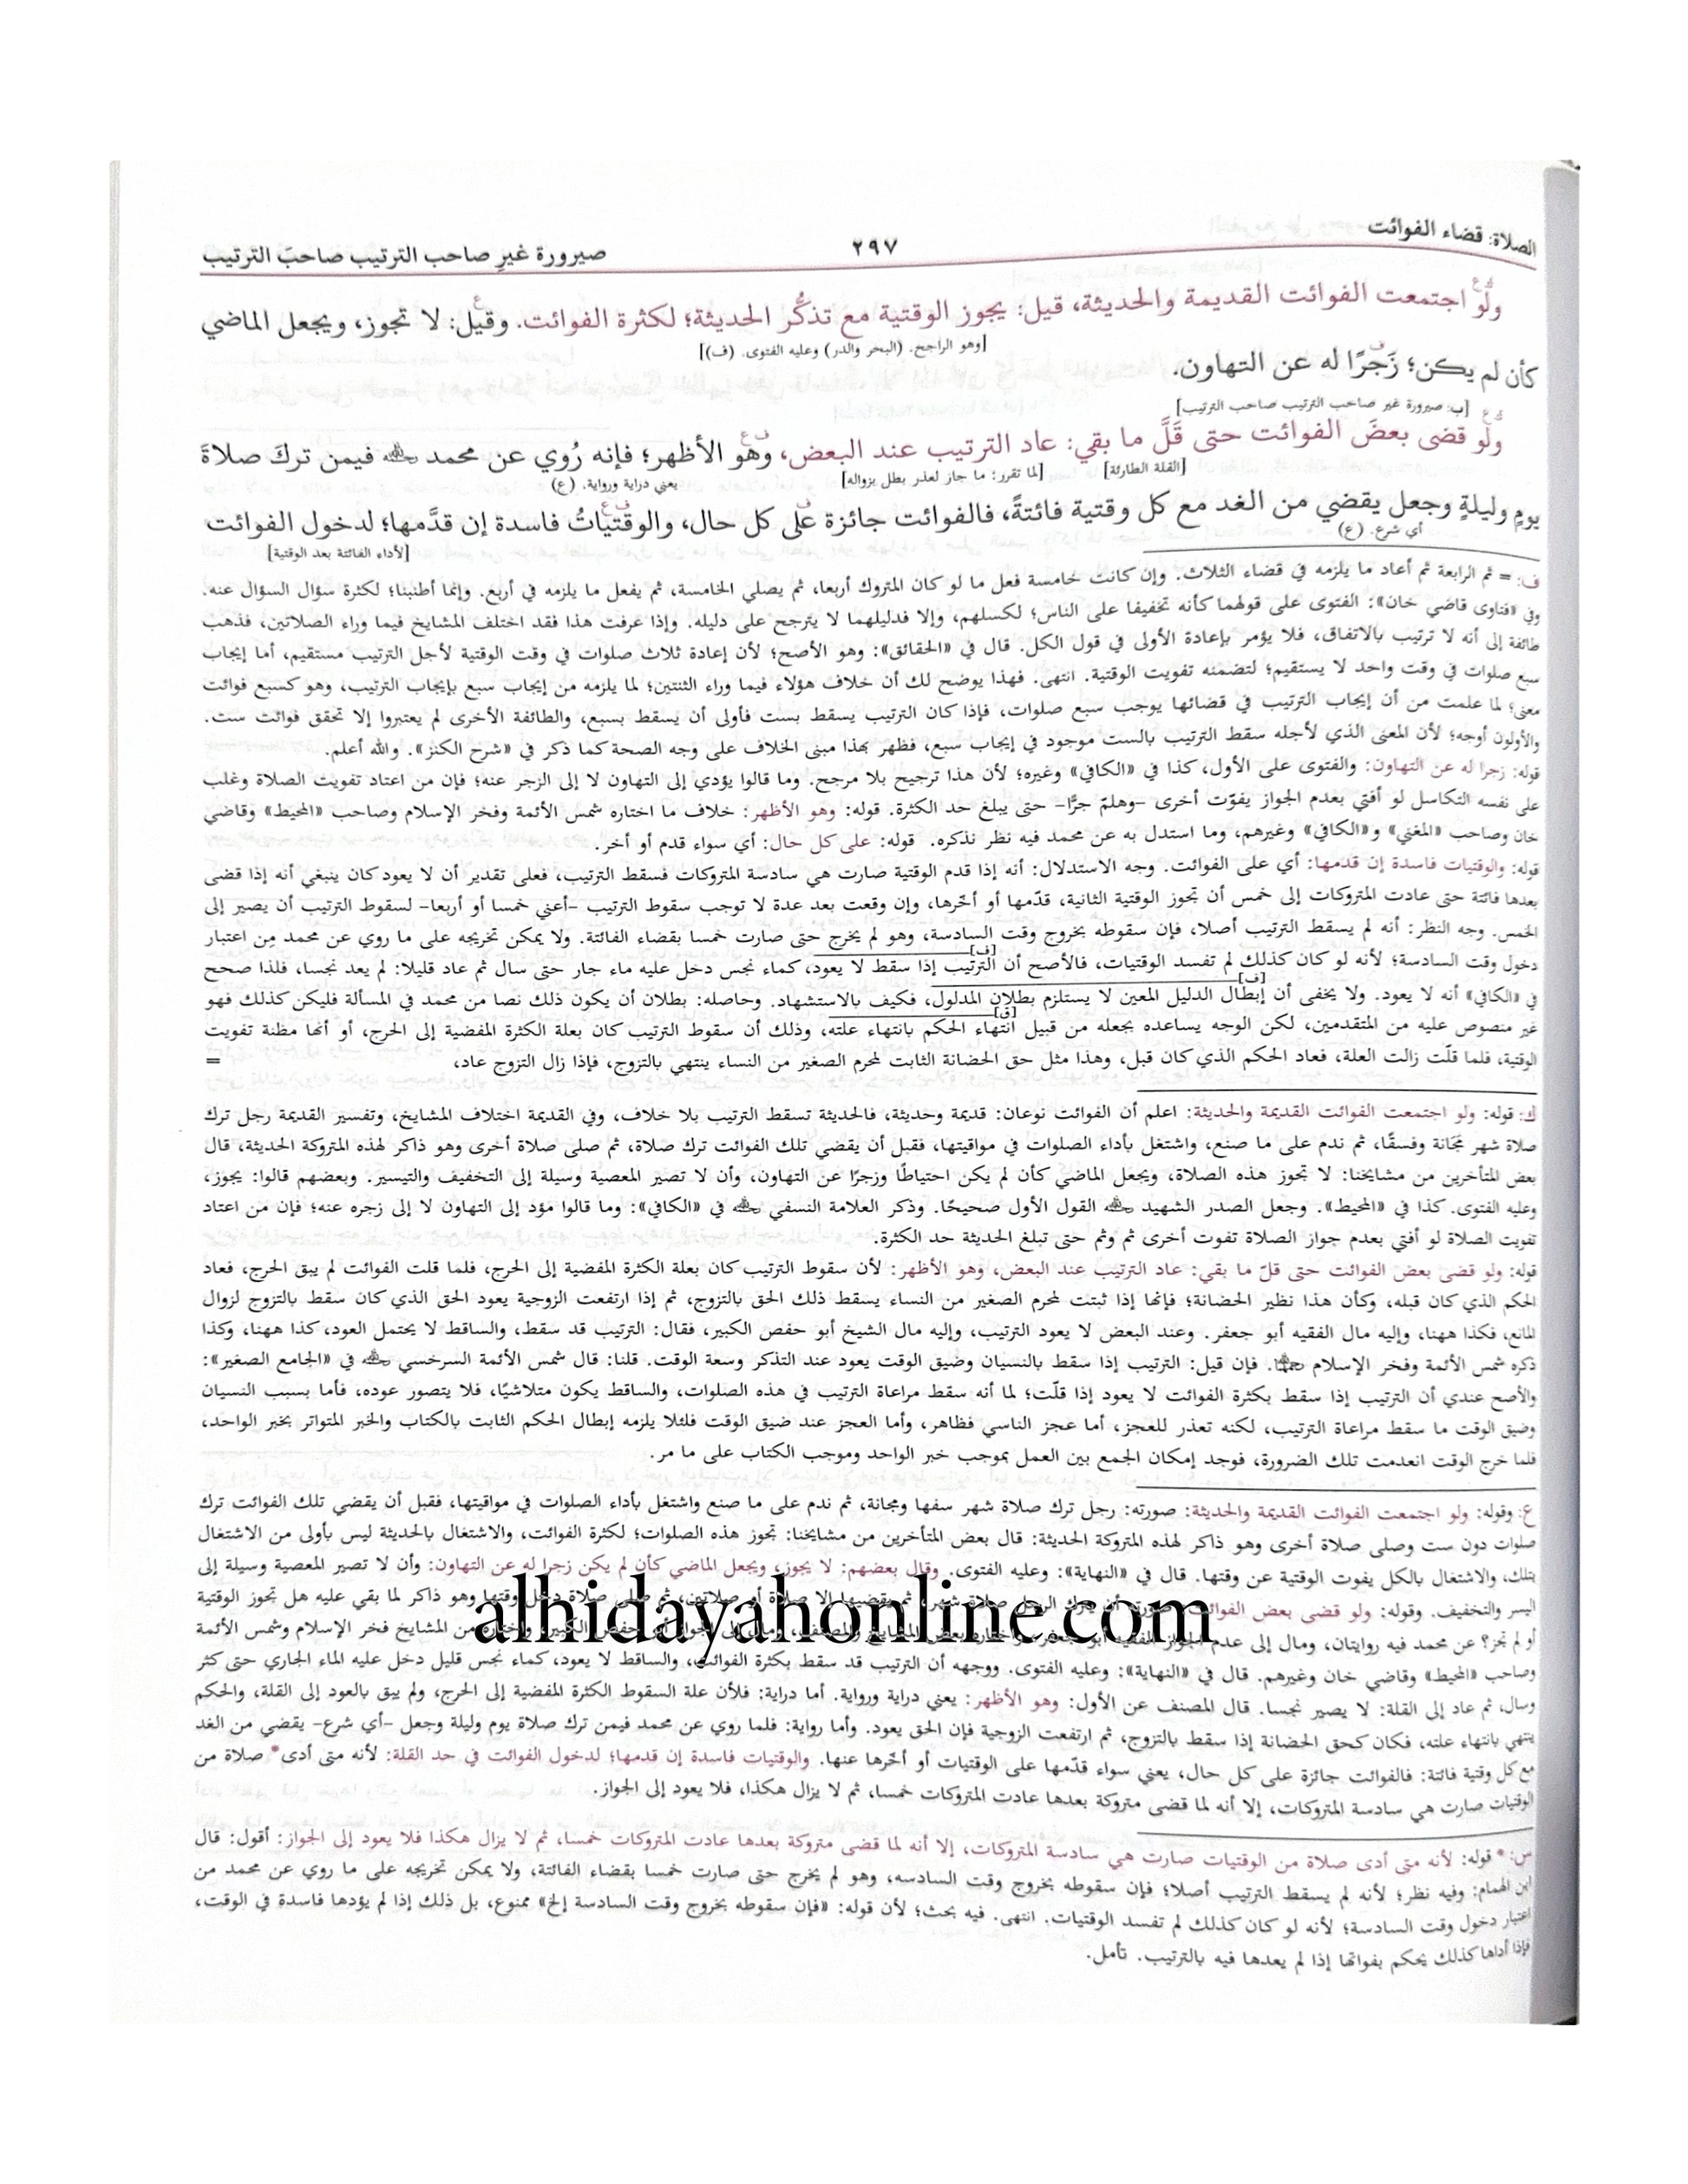 الصلاة: قضاء الفوائت
٢٩٧
صيرورة غيرِ صاحب الترتيب صاحبَ الترتيب
ولو اجتمعت الفوائت القديمة والحديثة، قيل: يجوز الوقتية مع تذكُّر الحديثة؛ لكثرة الفوائت. وقيل: لا تجوز، ويجعل الماضي
[وهو الراجح. (البحر والدر) وعليه الفتوى. (ف)]
كأن لم يكن؛ زَجرًا له عن التهاون.
[ب: صيرورة غير صاحب الترتيب صاحب الترتيب]
ولو قضى بعضَ الفوائت حتى قَلَّ ما بقي: عاد الترتيب عند البعض، وهو الأظهر؛ فإنه رُوي عن محمد رحمه الله فيمن تركَ صلاةَ
[القلة الطارئة]
[لما تقرر: ما جاز لعذر بطل بزواله]
يعني دراية ورواية. (ع)
يومٍ وليلةٍ وجعل يقضي من الغد مع كل وقتية فائتةً، فالفوائت جائزة على كل حال، والوقتياتُ فاسدة إن قدَّمها؛ لدخول الفوائت
أي شرع. (ع)
[لأداء الفائتة بعد الوقتية]
ف: = ثم الرابعة ثم أعاد ما يلزمه في قضاء الثلاث. وإن كانت خامسة فعل ما لو كان المتروك أربعا، ثم يصلي الخامسة، ثم يفعل ما يلزمه في أربع. وإنما أطنبنا؛ لكثرة سؤال السؤال عنه.
وفي «فتاوى قاضي خان»: الفتوى على قولهما كأنه تخفيفا على الناس؛ لكسلهم، وإلا فدليلهما لا يترجح على دليله. وإذا عرفت هذا فقد اختلف المشايخ فيما وراء الصلاتين، فذهب
طائفة إلى أنه لا ترتيب بالاتفاق، فلا يؤمر بإعادة الأولى في قول الكل. قال في «الحقائق»: وهو الأصح؛ لأن إعادة ثلاث صلوات في وقت الوقتية لأجل الترتيب مستقيم، أما إيجاب
سبع صلوات في وقت واحد لا يستقيم؛ لتضمنه تفويت الوقتية. انتهى. فهذا يوضح لك أن خلاف هؤلاء فيما وراء الثنتين؛ لما يلزمه من إيجاب سبع بإيجاب الترتيب، وهو كسبع فوائت
معنى؛ لما علمت من أن إيجاب الترتيب في قضائها يوجب سبع صلوات، فإذا كان الترتيب يسقط بست فأولى أن يسقط بسبع، والطائفة الأخرى لم يعتبروا إلا تحقق فوائت ست.
والأولون أوجه؛ لأن المعنى الذي لأجله سقط الترتيب بالست موجود في إيجاب سبع، فظهر بهذا مبنى الخلاف على وجه الصحة كما ذكر في «شرح الكنز». والله أعلم.
قوله: زجرا له عن التهاون: والفتوى على الأول، كذا في «الكافي» وغيره؛ لأن هذا ترجيح بلا مرجح. وما قالوا يؤدي إلى التهاون لا إلى الزجر عنه؛ فإن من اعتاد تفويت الصلاة وغلب
على نفسه التكاسل لو أفتي بعدم الجواز يفوّت أخرى -وهلمّ جرًّا- حتى يبلغ حد الكثرة. قوله: وهو الأظهر: خلاف ما اختاره شمس الأئمة وفخر الإسلام وصاحب «المحيط» وقاضي
خان وصاحب «المغني» و«الكافي» وغيرهم، وما استدل به عن محمد فيه نظر نذكره. قوله: على كل حال: أي سواء قدم أو أخر.
قوله: والوقتيات فاسدة إن قدمها: أي على الفوائت. وجه الاستدلال: أنه إذا قدم الوقتية صارت هي سادسة المتروكات فسقط الترتيب، فعلى تقدير أن لا يعود كان ينبغي أنه إذا قضى
بعدها فائتة حتى عادت المتروكات إلى خمس أن تجوز الوقتية الثانية، قدّمها أو أخّرها، وإن وقعت بعد عدة لا توجب سقوط الترتيب -أعني خمسا أو أربعا- لسقوط الترتيب أن يصير إلى
الخمس. وجه النظر: أنه لم يسقط الترتيب أصلا، فإن سقوطه بخروج وقت السادسة، وهو لم يخرج حتى صارت خمسا بقضاء الفائتة. ولا يمكن تخريجه على ما روي عن محمد مِن اعتبار
[ف]
دخول وقت السادسة؛ لأنه لو كان كذلك لم تفسد الوقتيات، فالأصح أن الترتيب إذا سقط لا يعود، كماء نجس دخل عليه ماء جار حتى سال ثم عاد قليلا: لم يعد نجسا، فلذا صحح
[ف]
في «الكافي» أنه لا يعود. ولا يخفى أن إبطال الدليل المعين لا يستلزم بطلان المدلول، فكيف بالاستشهاد. وحاصله: بطلان أن يكون ذلك نصا من محمد في المسألة فليكن كذلك فهو
[ق]
غير منصوص عليه من المتقدمين، لكن الوجه يساعده بجعله من قبيل انتهاء الحكم بانتهاء علته، وذلك أن سقوط الترتيب كان بعلة الكثرة المفضية إلى الحرج، أو أنها مظنة تفويت
الوقتية، فلما قلّت زالت العلة، فعاد الحكم الذي كان قبل، وهذا مثل حق الحضانة الثابت لمحرم الصغير من النساء ينتهي بالتزوج، فإذا زال التزوج عاد، =
ك: قوله: ولو اجتمعت الفوائت القديمة والحديثة: اعلم أن الفوائت نوعان: قديمة وحديثة، فالحديثة تسقط الترتيب بلا خلاف، وفي القديمة اختلاف المشايخ، وتفسير القديمة رجل ترك
صلاة شهر مجَانة وفسقًا، ثم ندم على ما صنع، واشتغل بأداء الصلوات في مواقيتها، فقبل أن يقضي تلك الفوائت ترك صلاة، ثم صلى صلاة أخرى وهو ذاكر لهذه المتروكة الحديثة، قال
بعض المتأخرين من مشايخنا: لا تجوز هذه الصلاة، ويجعل الماضي كأن لم يكن احتياطًا وزجرًا عن التهاون، وأن لا تصير المعصية وسيلة إلى التخفيف والتيسير. وبعضهم قالوا: يجوز،
وعليه الفتوى. كذا في «المحيط». وجعل الصدر الشهيد رحمه الله القول الأول صحيحًا. وذكر العلامة النسفي رحمه الله في «الكافي»: وما قالوا مؤد إلى التهاون لا إلى زجره عنه؛ فإن من اعتاد
تفويت الصلاة لو أفتي بعدم جواز الصلاة تفوت أخرى ثم وثم حتى تبلغ الحديثة حد الكثرة.
قوله: ولو قضى بعض الفوائت حتى قلّ ما بقي: عاد الترتيب عند البعض، وهو الأظهر: لأن سقوط الترتيب كان بعلة الكثرة المفضية إلى الحرج، فلما قلت الفوائت لم يبق الحرج، فعاد
الحكم الذي كان قبله، وكأن هذا نظير الحضانة؛ فإنها إذا ثبتت لمحرم الصغير من النساء يسقط ذلك الحق بالتزوج، ثم إذا ارتفعت الزوجية يعود الحق الذي كان سقط بالتزوج لزوال
المانع، فكذا ههنا، وإليه مال الفقيه أبو جعفر. وعند البعض لا يعود الترتيب، وإليه مال الشيخ أبو حفص الكبير، فقال: الترتيب قد سقط، والساقط لا يحتمل العود، كذا ههنا، وكذا
ذكره شمس الأئمة وفخر الإسلام رحمهما الله. فإن قيل: الترتيب إذا سقط بالنسيان وضيق الوقت يعود عند التذكر وسعة الوقت. قلنا: قال شمس الأئمة السرخسي رحمه الله في «الجامع الصغير»:
والأصح عندي أن الترتيب إذا سقط بكثرة الفوائت لا يعود إذا قلّت؛ لما أنه سقط مراعاة الترتيب في هذه الصلوات، والساقط يكون متلاشيًا، فلا يتصور عوده، فأما بسبب النسيان
وضيق الوقت ما سقط مراعاة الترتيب، لكنه تعذر للعجز، أما عجز الناسي فظاهر، وأما العجز عند ضيق الوقت فلئلا يلزمه إبطال الحكم الثابت بالكتاب والخبر المتواتر بخبر الواحد،
فلما خرج الوقت انعدمت تلك الضرورة، فوجد إمكان الجمع بين العمل بموجب خبر الواحد وموجب الكتاب على ما مر.
ع: وقوله: ولو اجتمعت الفوائت القديمة والحديثة: صورته: رجل ترك صلاة شهر سفها ومجانة، ثم ندم على ما صنع واشتغل بأداء الصلوات في مواقيتها، فقبل أن يقضي تلك الفوائت ترك
صلوات دون ست وصلى صلاة أخرى وهو ذاكر لهذه المتروكة الحديثة: قال بعض المتأخرين من مشايخنا: تجوز هذه الصلوات؛ لكثرة الفوائت، والاشتغال بالحديثة ليس بأولى من الاشتغال
بتلك، والاشتغال بالكل يفوت الوقتية عن وقتها. قال في «النهاية»: وعليه الفتوى. وقال بعضهم: لا يجوز، ويجعل الماضي كأن لم يكن زجرا له عن التهاون: وأن لا تصير المعصية وسيلة إلى
اليسر والتخفيف. وقوله: ولو قضى بعض الفوائت: صورته أن يترك الرجل صلاة شهر، ثم يقضيها إلا صلاة أو صلاتين، ثم صلى صلاة دخل وقتها وهو ذاكر لما بقي عليه هل تجوز الوقتية
alhidayahonline.com
أو لم تجز؟ عن محمد فيه روايتان، ومال إلى عدم الجواز الفقيه أبو جعفر، واختاره بعض المشايخ والمصنف، ومال إلى الجواز أبو حفص الكبير، واختاره من المشايخ فخر الإسلام وشمس الأئمة
وصاحب «المحيط» وقاضي خان وغيرهم. قال في «النهاية»: وعليه الفتوى. ووجهه أن الترتيب قد سقط بكثرة الفوائت، والساقط لا يعود، كماء نجس قليل دخل عليه الماء الجاري حتى كثر
وسال، ثم عاد إلى القلة: لا يصير نجسا. قال المصنف عن الأول: وهو الأظهر: يعني دراية ورواية. أما دراية: فلأن علة السقوط الكثرة المفضية إلى الحرج، ولم يبق بالعود إلى القلة، والحكم
ينتهي بانتهاء علته، فكان كحق الحضانة إذا سقط بالتزوج، ثم ارتفعت الزوجية فإن الحق يعود. وأما رواية: فلما روي عن محمد فيمن ترك صلاة يوم وليلة وجعل -أي شرع- يقضي من الغد
مع كل وقتية فائتة: فالفوائت جائزة على كل حال، يعني سواء قدّمها على الوقتيات أو أخّرها عنها. والوقتيات فاسدة إن قدمها؛ لدخول الفوائت في حد القلة: لأنه متى أدى* صلاة من
الوقتيات صارت هي سادسة المتروكات، إلا أنه لما قضى متروكة بعدها عادت المتروكات خمسا، ثم لا يزال هكذا، فلا يعود إلى الجواز.
س: * قوله: لأنه متى أدى صلاة من الوقتيات صارت هي سادسة المتروكات، إلا أنه لما قضى متروكة بعدها عادت المتروكات خمسا، ثم لا يزال هكذا فلا يعود إلى الجواز: أقول: قال
ابن الهمام: وفيه نظر؛ لأنه لم يسقط الترتيب أصلا؛ فإن سقوطه بخروج وقت السادسه، وهو لم يخرج حتى صارت خمسا بقضاء الفائتة، ولا يمكن تخريجه على ما روي عن محمد من
اعتبار دخول وقت السادسة؛ لأنه لو كان كذلك لم تفسد الوقتيات. انتهى. فيه بحث؛ لأن قوله: «فإن سقوطه بخروج وقت السادسة إلخ» ممنوع، بل ذلك إذا لم يؤدها فاسدة في الوقت،
فإذا أداها كذلك يحكم بفواتها إذا لم يعدها فيه بالترتيب. تأمل.